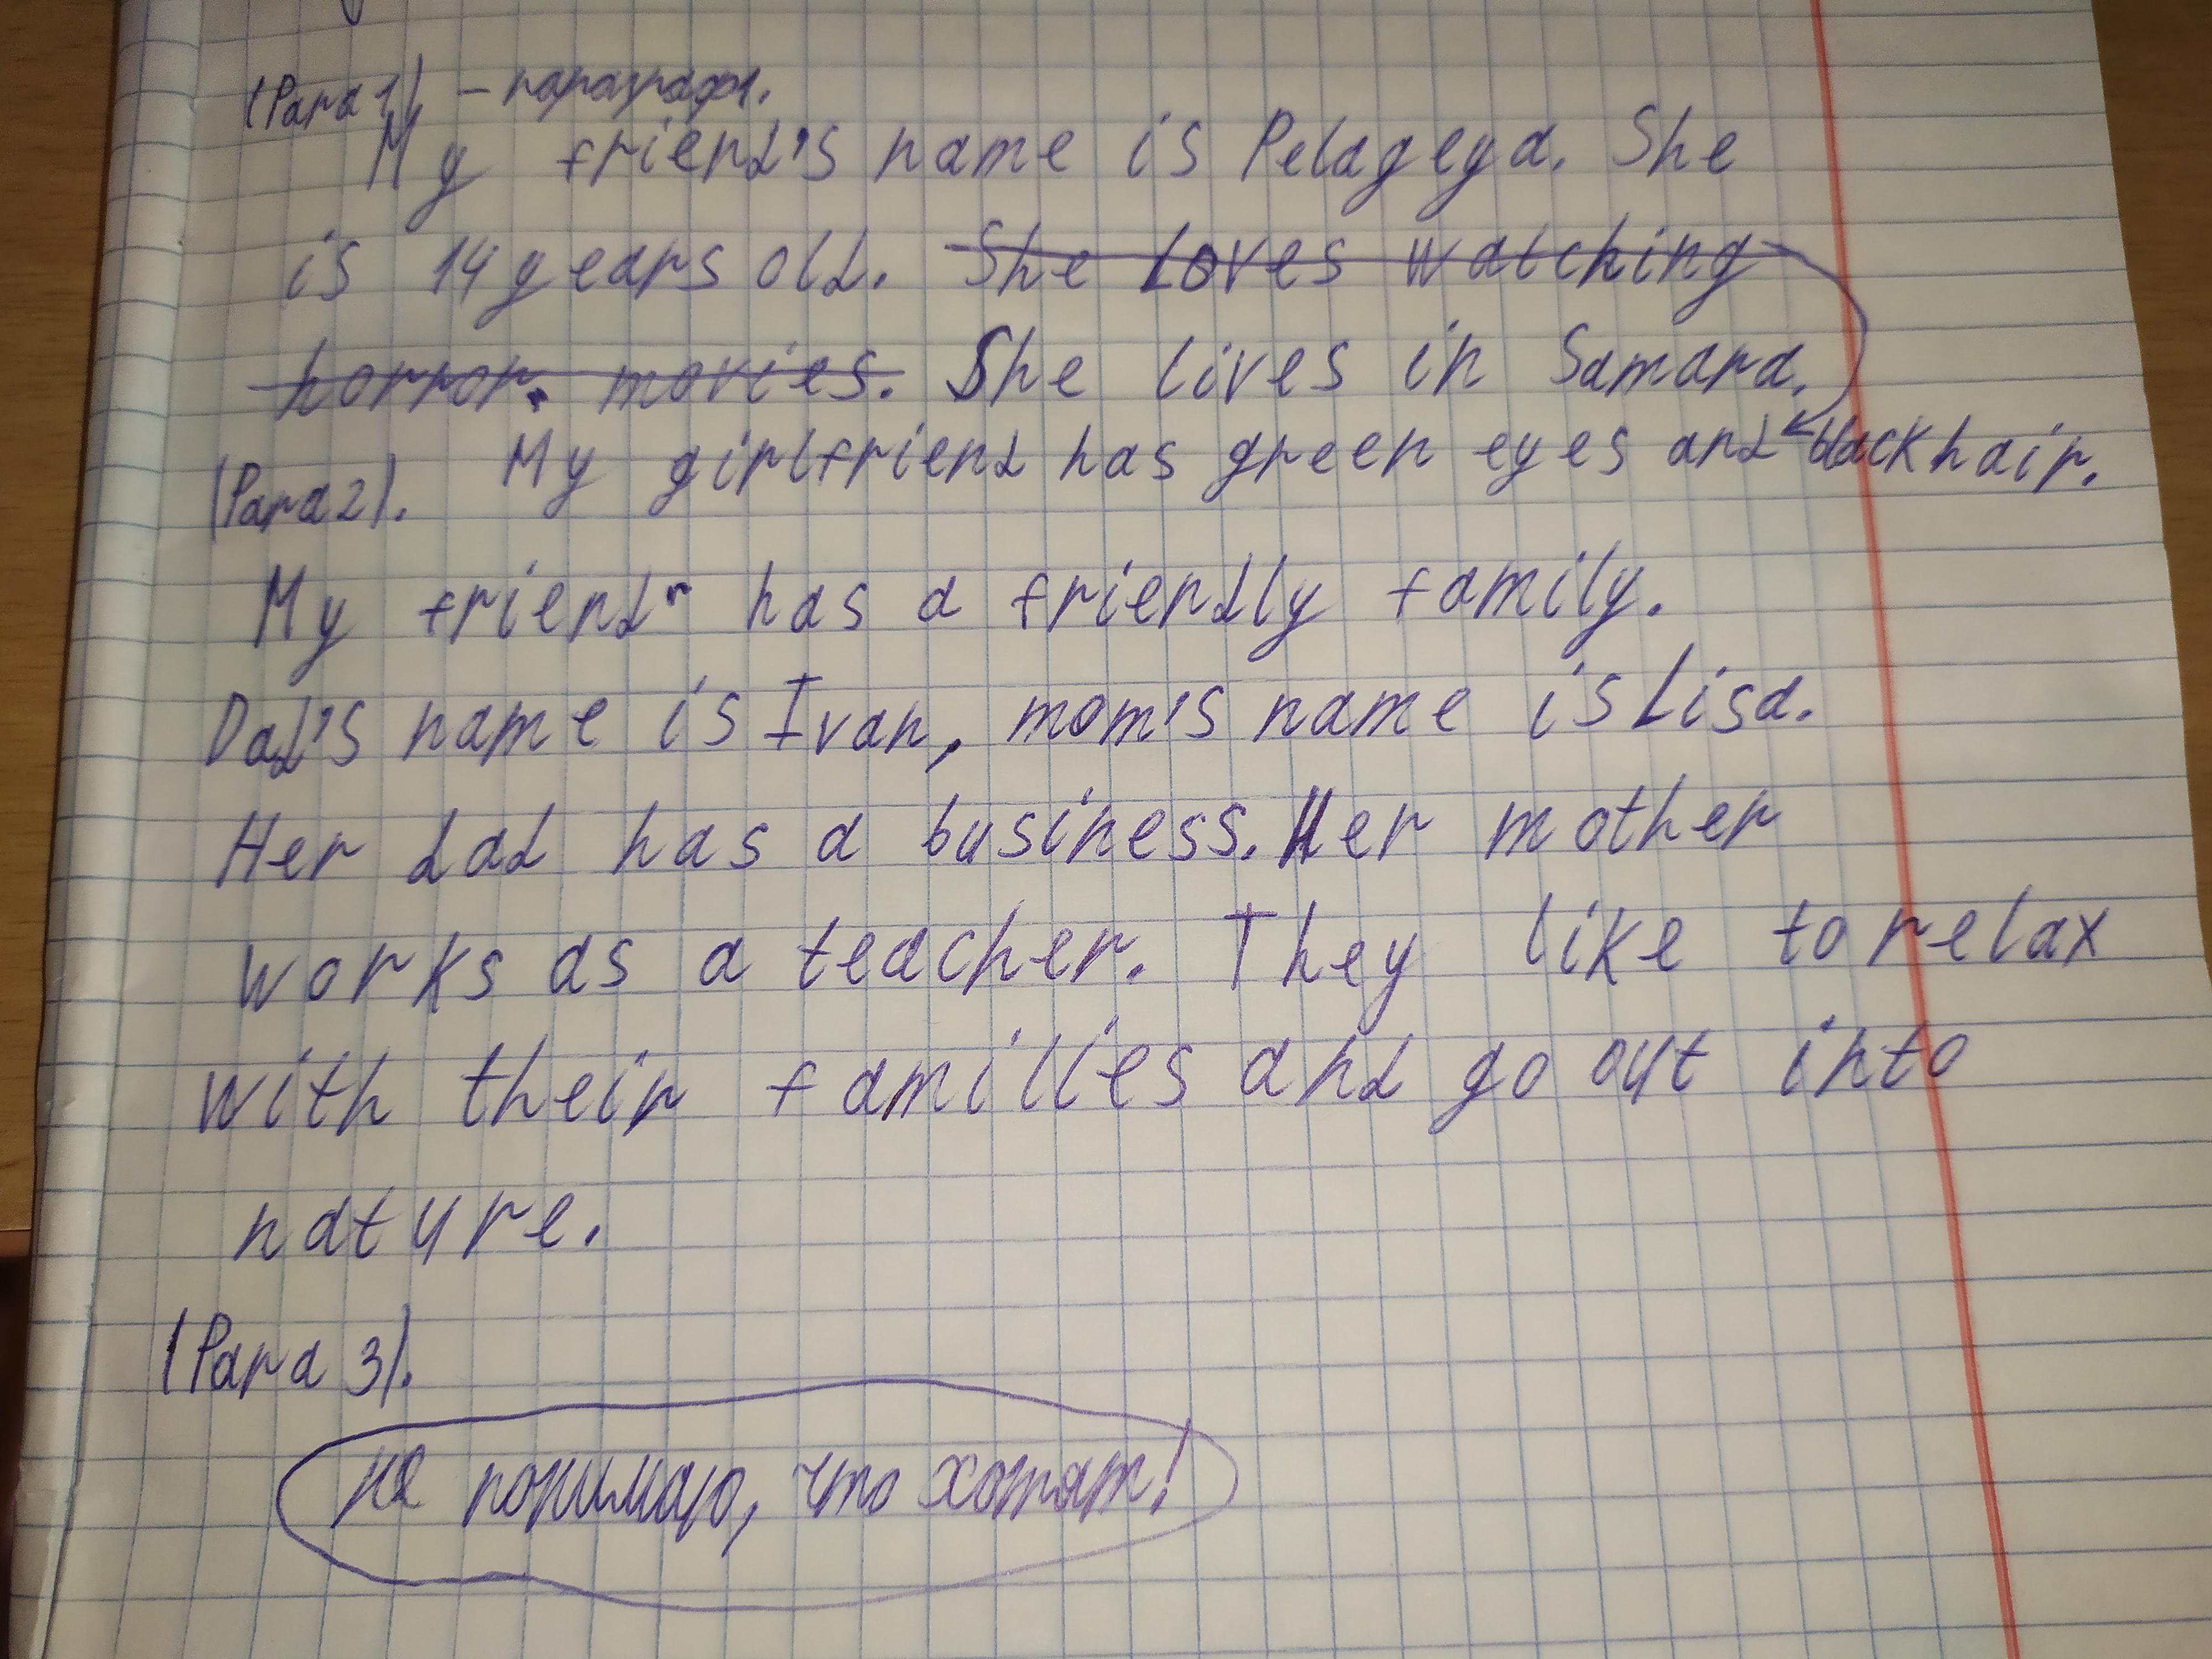 (Para 1) - параграф.
My friend's name is Pelageya. She
is 14 years old. She loves watching
horror. movies. She lives in Samara.
(Para 2). My girlfriend has green eyes and black hair.
My friend has a friendly family.
Dad's name is Ivan, mom's name is Lisa.
Her dad has a business. Her mother
works as a teacher. They like to relax
with their families and go out into
nature.
(Para 3).
не понимаю, что хотят!